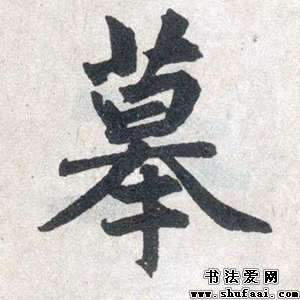 摹
书法爱网
www.shufaai.com